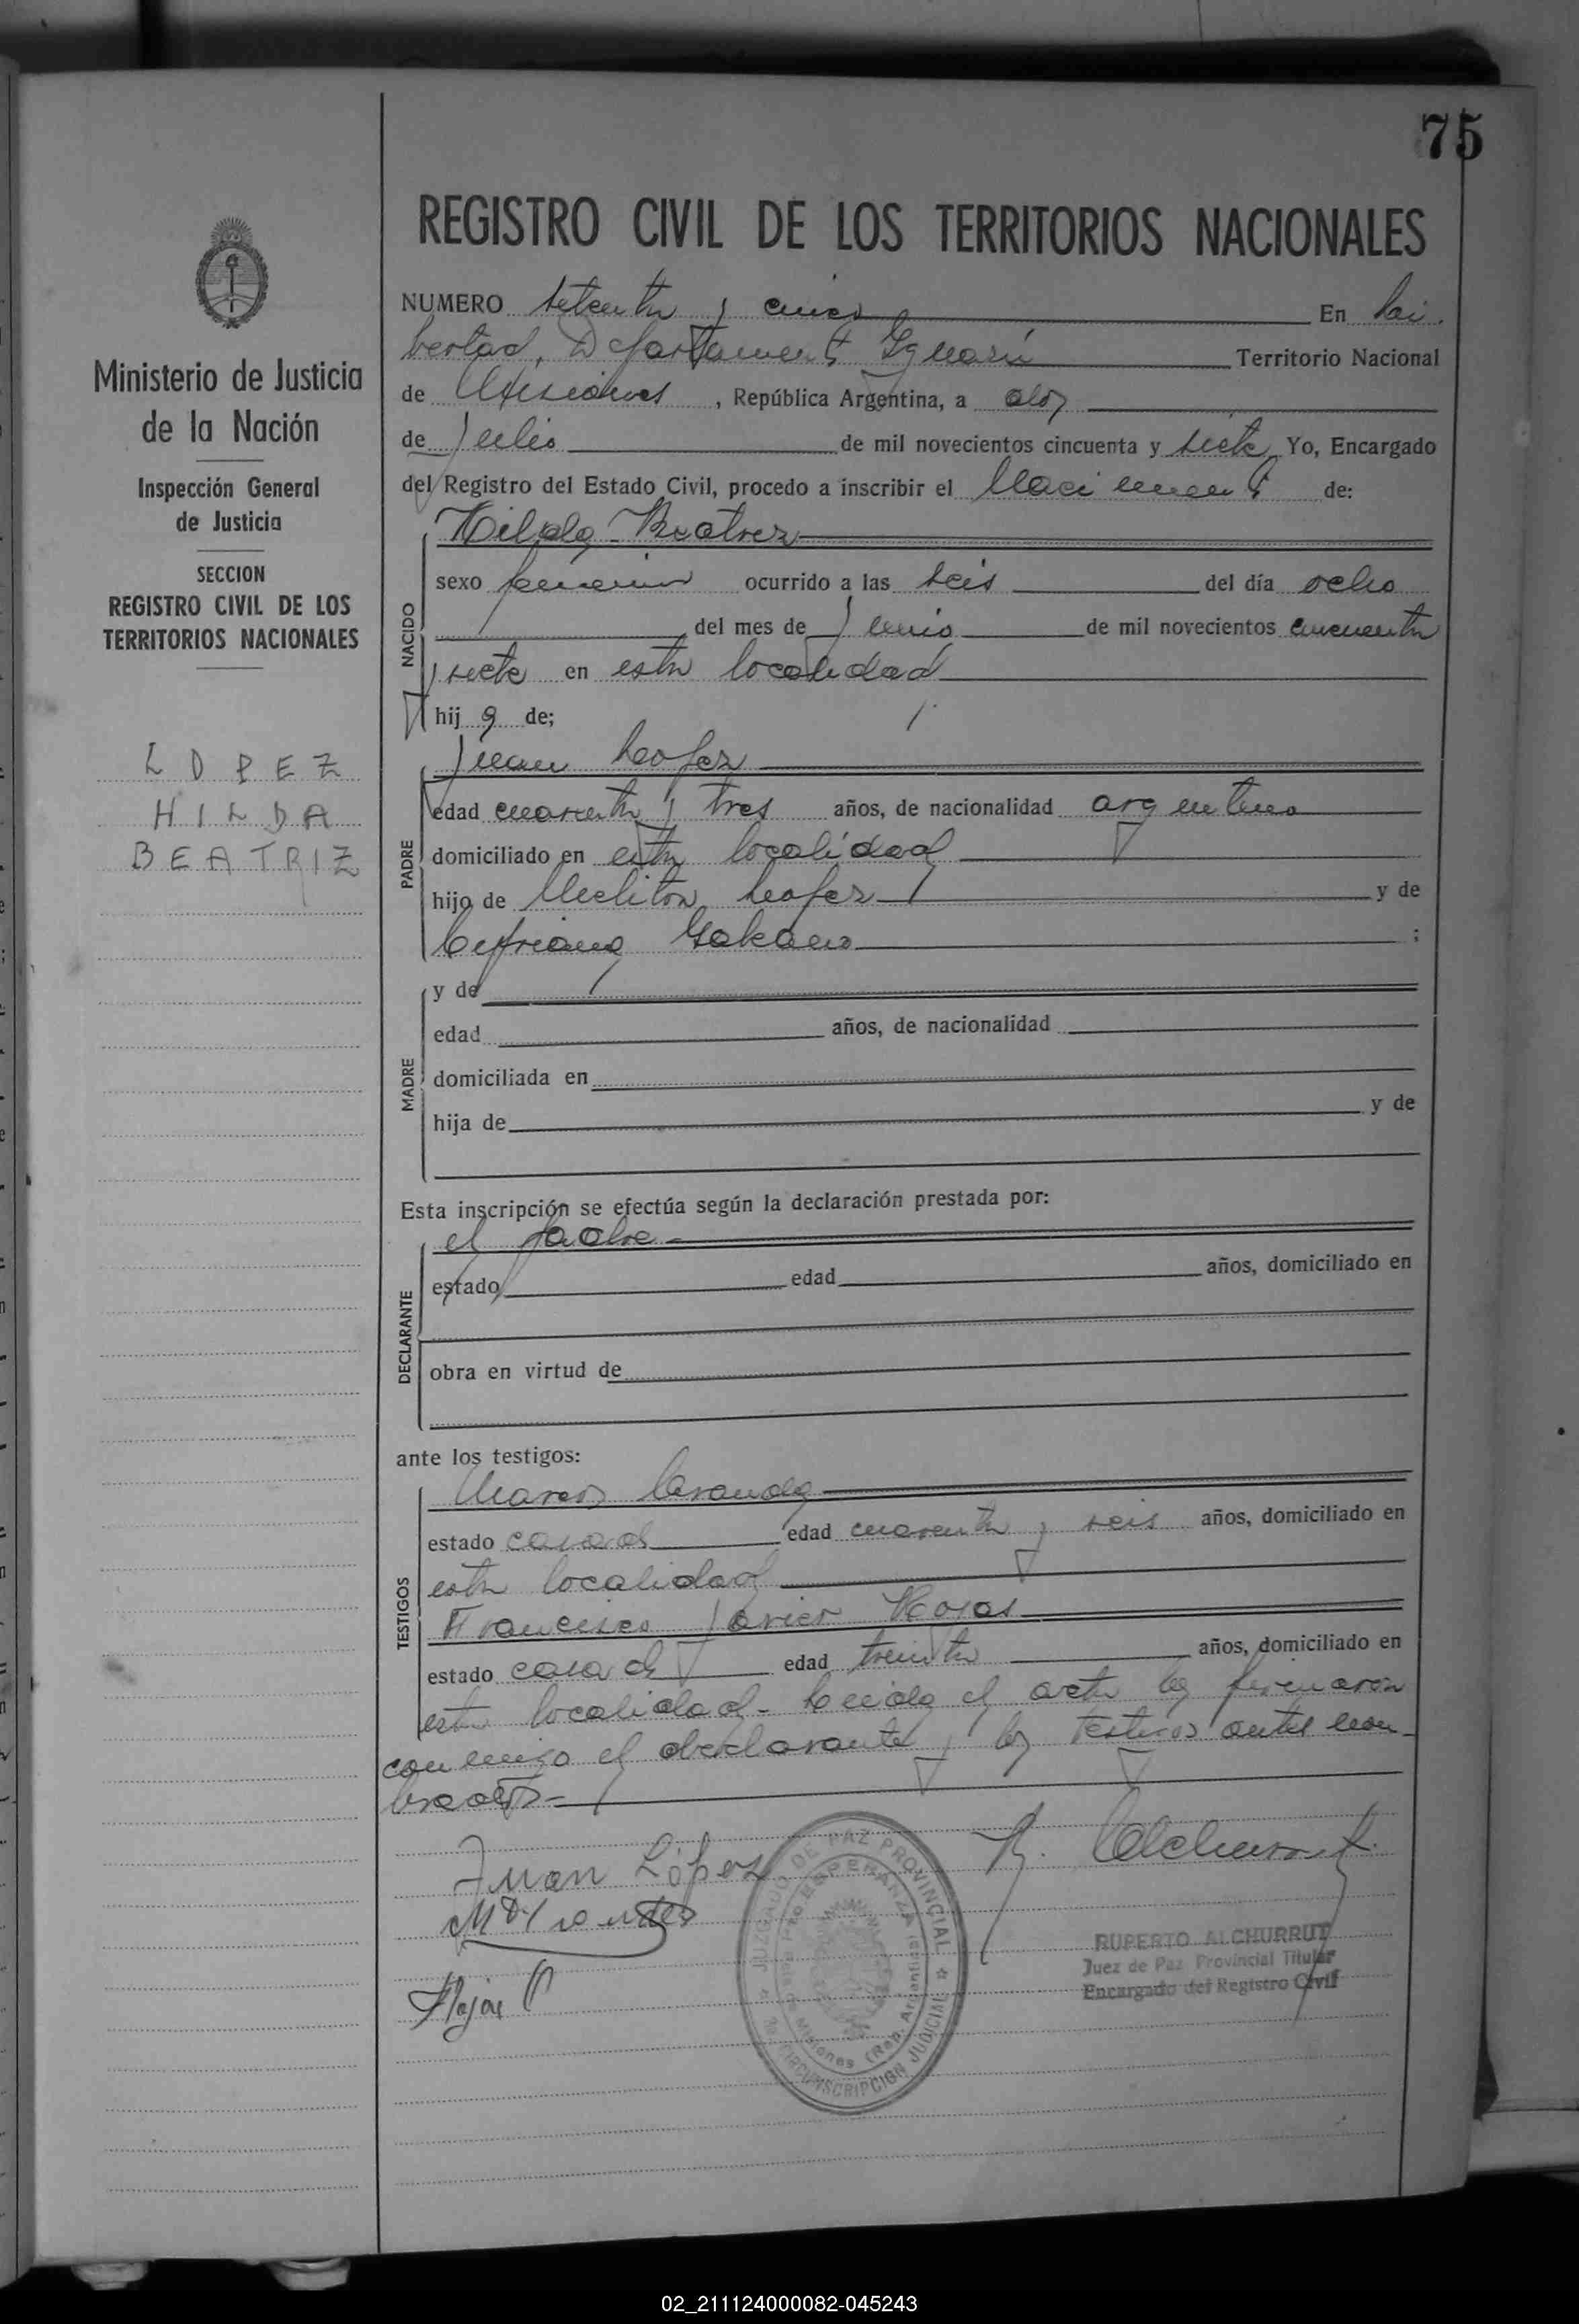 75
REGISTRO CIVIL DE LOS TERRITORIOS NACIONALES
NUMERO setenta y cinco En Li-
bertad, Departamento Iguazú Territorio Nacional
de Misiones, República Argentina, a dos
de Julio de mil novecientos cincuenta y siete Yo, Encargado
del Registro del Estado Civil, procedo a inscribir el Nacimiento de:
Ministerio de Justicia
de la Nación
Inspección General
de Justicia
SECCION
REGISTRO CIVIL DE LOS
TERRITORIOS NACIONALES
LOPEZ
HILDA
BEATRIZ
NACIDO
Hilda Beatriz
sexo femenino ocurrido a las seis del día ocho
del mes de Junio de mil novecientos cincuenta
y siete en esta localidad
hij a de;
PADRE
Juan Lopez
edad cuarenta y tres años, de nacionalidad argentino
domiciliado en esta localidad
hijo de Meliton Lopez y de
Cipriana ;
MADRE
y de
edad años, de nacionalidad
domiciliada en
hija de y de
Esta inscripción se efectúa según la declaración prestada por:
DECLARANTE
el padre
estado edad años, domiciliado en
obra en virtud de
ante los testigos:
TESTIGOS
Marcos
estado casado edad cuarenta y seis años, domiciliado en
esta localidad
Francisco Javier Rojas
estado casado edad treinta años, domiciliado en
esta localidad - Leida el acta la firmaron
conmigo el declarante y los testigos antes nom-
brados-
Juan López
R. Alchurrut
Rojas
JUZGADO DE PAZ PROVINCIAL
Pto ESPERANZA
Misiones (Rep. Argentina)
CIRCUNSCRIPCION JUDICIAL
RUPERTO ALCHURRUT
Juez de Paz Provincial Titular
Encargado del Registro Civil
02_211124000082-045243